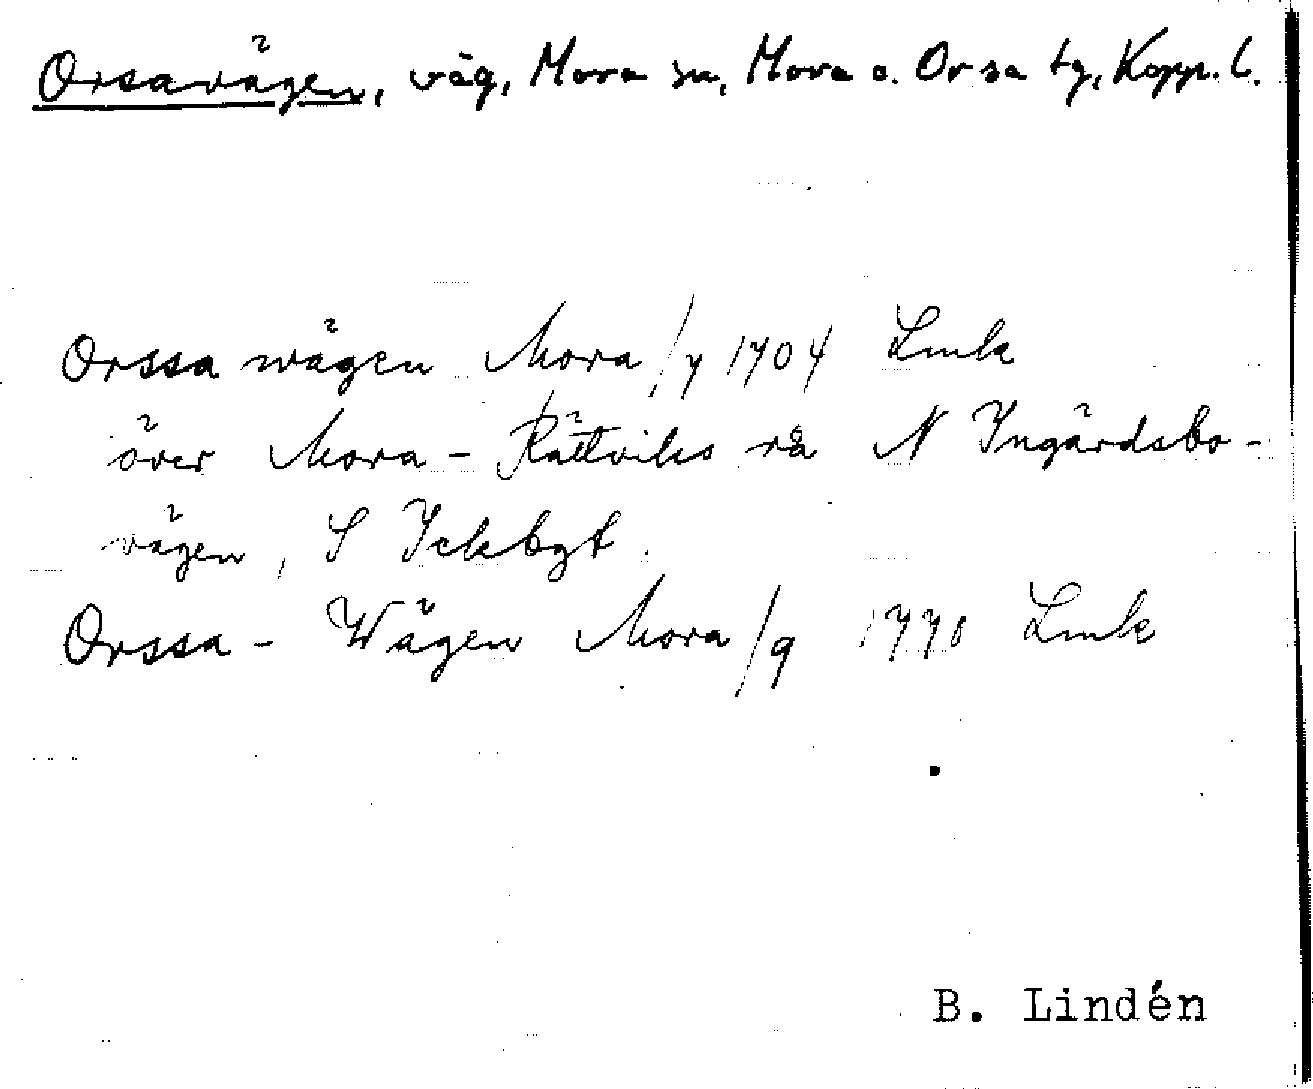 Orsavägen, väg, Mora sn, Mora o. Orsa tg, Kopp. l.
Orssa wägen Mora/7 1704 Lmk
över Mora - Rättviks rå N Ingärdsbo-
vägen, S Ickbgt.
Orssa - Wägen Mora/9 1770 Lmk
B. Lindén